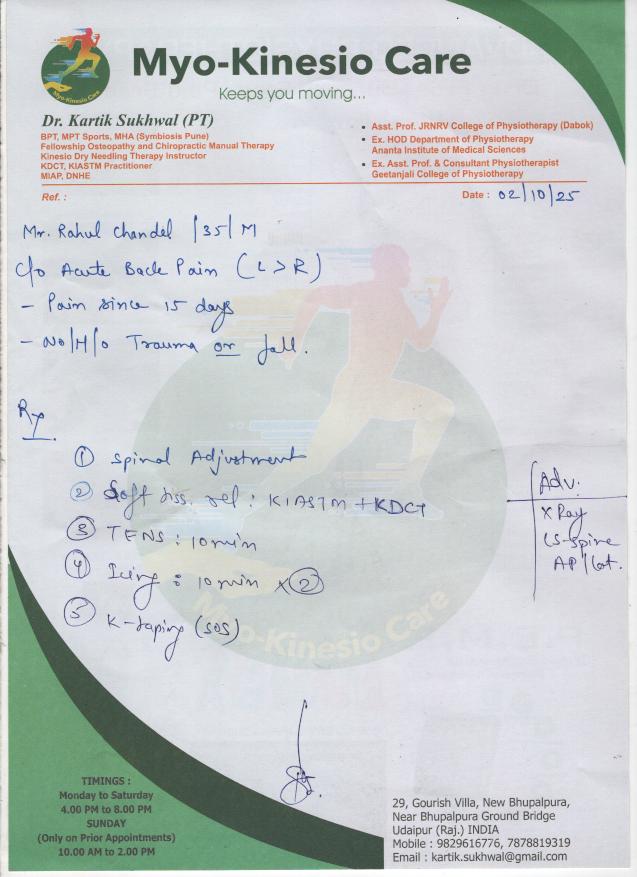 Myo-Kinesio Care
Keeps you moving...
Myo-Kinesio Care
Dr. Kartik Sukhwal (PT)
BPT, MPT Sports, MHA (Symbiosis Pune)
Fellowship Osteopathy and Chiropractic Manual Therapy
Kinesio Dry Needling Therapy Instructor
KDCT, KIASTM Practitioner
MIAP, DNHE
• Asst. Prof. JRNRV College of Physiotherapy (Dabok)
• Ex. HOD Department of Physiotherapy
Ananta Institute of Medical Sciences
• Ex. Asst. Prof. & Consultant Physiotherapist
Geetanjali College of Physiotherapy
Ref. :
Date : 02/10/25
Mr. Rahul Chandel /35/M
C/o Acute Back Pain (L>R)
- Pain since 15 days
- No/H/o Trauma or fall.
Rx
① Spinal Adjustment
② Soft tiss. rel : KIASTM + KDCT
③ TENS : 10 min
④ Icing : 10 min x ②
⑤ K-taping (SOS)
Adv.
X Ray
LS-spine
AP/Lat.
Myo-Kinesio Care
TIMINGS :
Monday to Saturday
4.00 PM to 8.00 PM
SUNDAY
(Only on Prior Appointments)
10.00 AM to 2.00 PM
29, Gourish Villa, New Bhupalpura,
Near Bhupalpura Ground Bridge
Udaipur (Raj.) INDIA
Mobile : 9829616776, 7878819319
Email : kartik.sukhwal@gmail.com